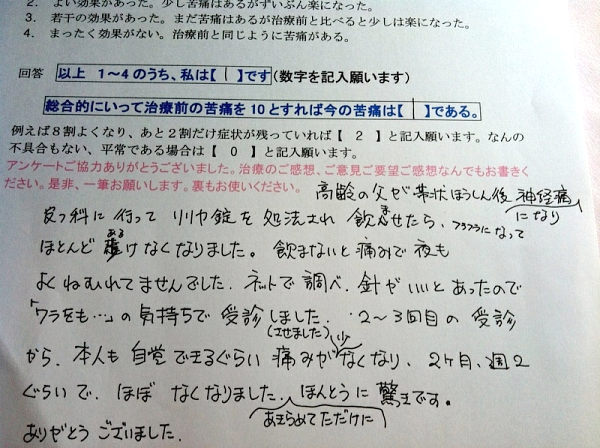 2. よい効果があった。少し苦痛はあるがずいぶん楽になった。
3. 若干の効果があった。まだ苦痛はあるが治療前と比べると少しは楽になった。
4. まったく効果がない。治療前と同じように苦痛がある。
回答 以上 1~4のうち、私は【 1 】です(数字を記入願います)
総合的にいって治療前の苦痛を10とすれば今の苦痛は【 1 】である。
例えば8割よくなり、あと2割だけ症状が残っていれば【 2 】と記入願います。なんの
不具合もない、平常である場合は【 0 】と記入願います。
アンケートご協力ありがとうございました。治療のご感想、ご意見ご要望ご感想なんでもお書きく
ださい。是非、一筆お願いします。裏もお使いください。
高齢の父が帯状ほうしん後神経痛
になり
皮フ科に行って リリカ錠を処法され 飲ませたら、フラフラになって
ほとんど あるけなくなりました。飲まないと痛みで夜も
よくねむれてませんでした。ネットで調べ、針がいいとあったので
「ワラをも…」の気持ちで受診しました。2~3回目の受診
(させました) 少
から、本人も自覚できるぐらい痛みがなくなり、2ヶ月、週2
ぐらいで、ほぼ なくなりました。ほんとうに驚きです。
あきらめてただけに
ありがとうございました。